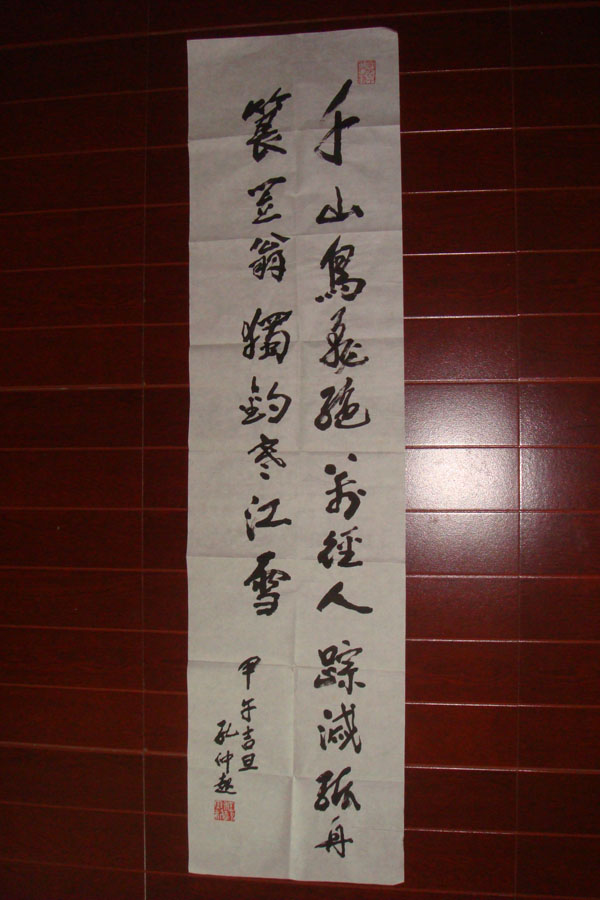 千山鳥飛絶萬徑人踪滅孤舟
簑笠翁獨釣寒江雪
甲午吉旦
孔仲起